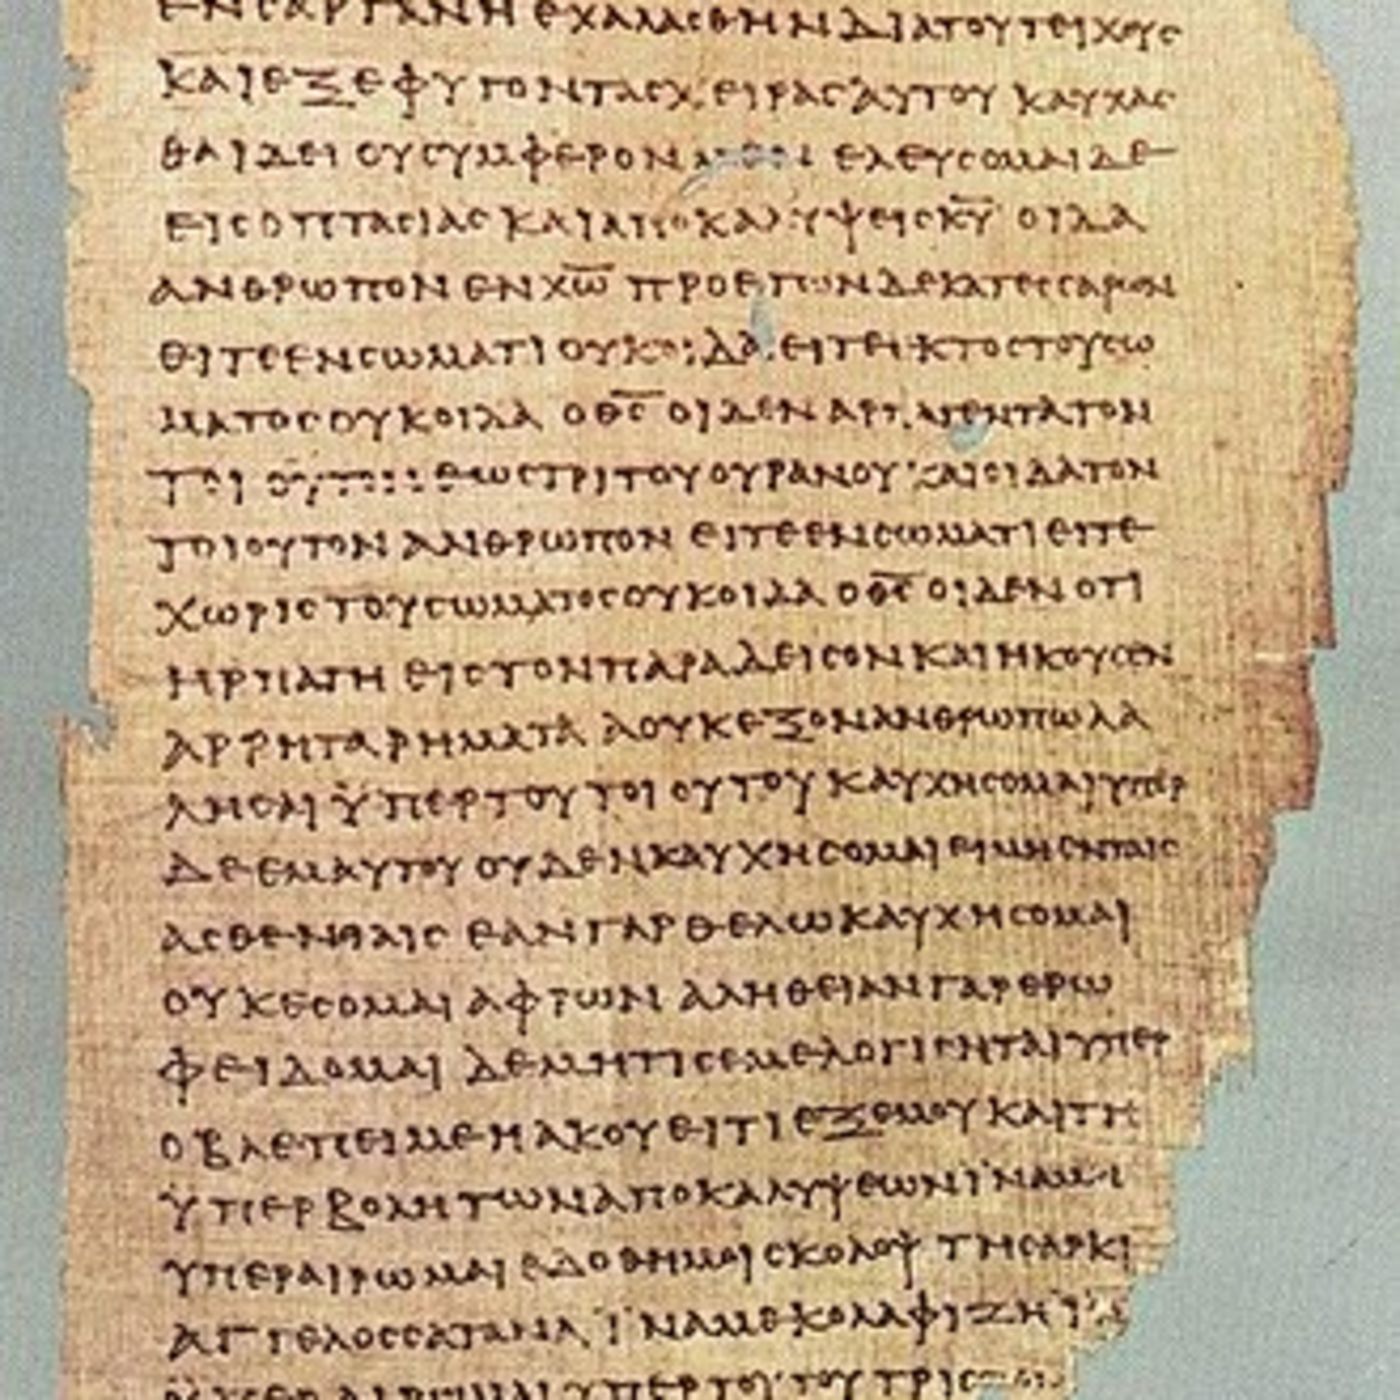 ΕΝ ϹΑΡΓΑΝΗ ΕΧΑΛΑϹΘΗΝ ΔΙΑ ΤΟΥ ΤΕΙΧΟΥϹ
ΚΑΙ ΕΞΕΦΥΓΟΝ ΤΑϹ ΧΕΙΡΑϹ ΑΥΤΟΥ ΚΑΥΧΑϹ
ΘΑΙ ΔΕΙ ΟΥ ϹΥΜΦΕΡΟΝ ΕΛΕΥϹΟΜΑΙ ΔΕ
ΕΙϹ ΟΠΤΑϹΙΑϹ ΚΑΙ ΑΠΟΚΑΛΥΨΕΙϹ Κ̅Υ̅ ΟΙΔΑ
ΑΝΘΡΩΠΟΝ ΕΝ Χ̅Ω̅ ΠΡΟ ΕΤΩΝ ΔΕΚΑΤΕϹϹΑΡΩΝ
ΕΙΤΕ ΕΝ ϹΩΜΑΤΙ ΟΥΚ ΟΙΔΑ ΕΙΤΕ ΕΚΤΟϹ ΤΟΥ ϹΩ
ΜΑΤΟϹ ΟΥΚ ΟΙΔΑ Ο Θ̅Ϲ̅ ΟΙΔΕΝ ΑΡΠΑΓΕΝΤΑ ΤΟΝ
ΤΟΙΟΥΤΟΝ ΕΩϹ ΤΡΙΤΟΥ ΟΥΡΑΝΟΥ ΚΑΙ ΟΙΔΑ ΤΟΝ
ΤΟΙΟΥΤΟΝ ΑΝΘΡΩΠΟΝ ΕΙΤΕ ΕΝ ϹΩΜΑΤΙ ΕΙΤΕ
ΧΩΡΙϹ ΤΟΥ ϹΩΜΑΤΟϹ ΟΥΚ ΟΙΔΑ Ο Θ̅Ϲ̅ ΟΙΔΕΝ ΟΤΙ
ΗΡΠΑΓΗ ΕΙϹ ΤΟΝ ΠΑΡΑΔΕΙϹΟΝ ΚΑΙ ΗΚΟΥϹΕΝ
ΑΡΡΗΤΑ ΡΗΜΑΤΑ Α ΟΥΚ ΕΞΟΝ ΑΝΘΡΩΠΩ ΛΑ
ΛΗϹΑΙ ΫΠΕΡ ΤΟΥ ΤΟΙΟΥΤΟΥ ΚΑΥΧΗϹΟΜΑΙ ΥΠΕΡ
ΔΕ ΕΜΑΥΤΟΥ ΟΥΔΕΝ ΚΑΥΧΗϹΟΜΑΙ ΕΙ ΜΗ ΕΝ ΤΑΙϹ
ΑϹΘΕΝΕΙΑΙϹ ΕΑΝ ΓΑΡ ΘΕΛΩ ΚΑΥΧΗϹΟΜΑΙ
ΟΥΚ ΕϹΟΜΑΙ ΑΦΡΩΝ ΑΛΗΘΕΙΑΝ ΓΑΡ ΕΡΩ
ΦΕΙΔΟΜΑΙ ΔΕ ΜΗ ΤΙϹ ΕΜΕ ΛΟΓΙϹΗΤΑΙ ΥΠΕΡ
Ο ΒΛΕΠΕΙ ΜΕ Η ΑΚΟΥΕΙ ΤΙ ΕΞ ΕΜΟΥ ΚΑΙ ΤΗ
ΫΠΕΡΒΟΛΗ ΤΩΝ ΑΠΟΚΑΛΥΨΕΩΝ ΪΝΑ ΜΗ
ΥΠΕΡΑΙΡΩΜΑΙ ΕΔΟΘΗ ΜΟΙ ϹΚΟΛΟΨ ΤΗ ϹΑΡΚΙ
ΑΓΓΕΛΟϹ ϹΑΤΑΝΑ ΪΝΑ ΜΕ ΚΟΛΑΦΙΖΗ
ΥΠΕΡ ΤΟΥΤΟΥ ΤΡΙϹ